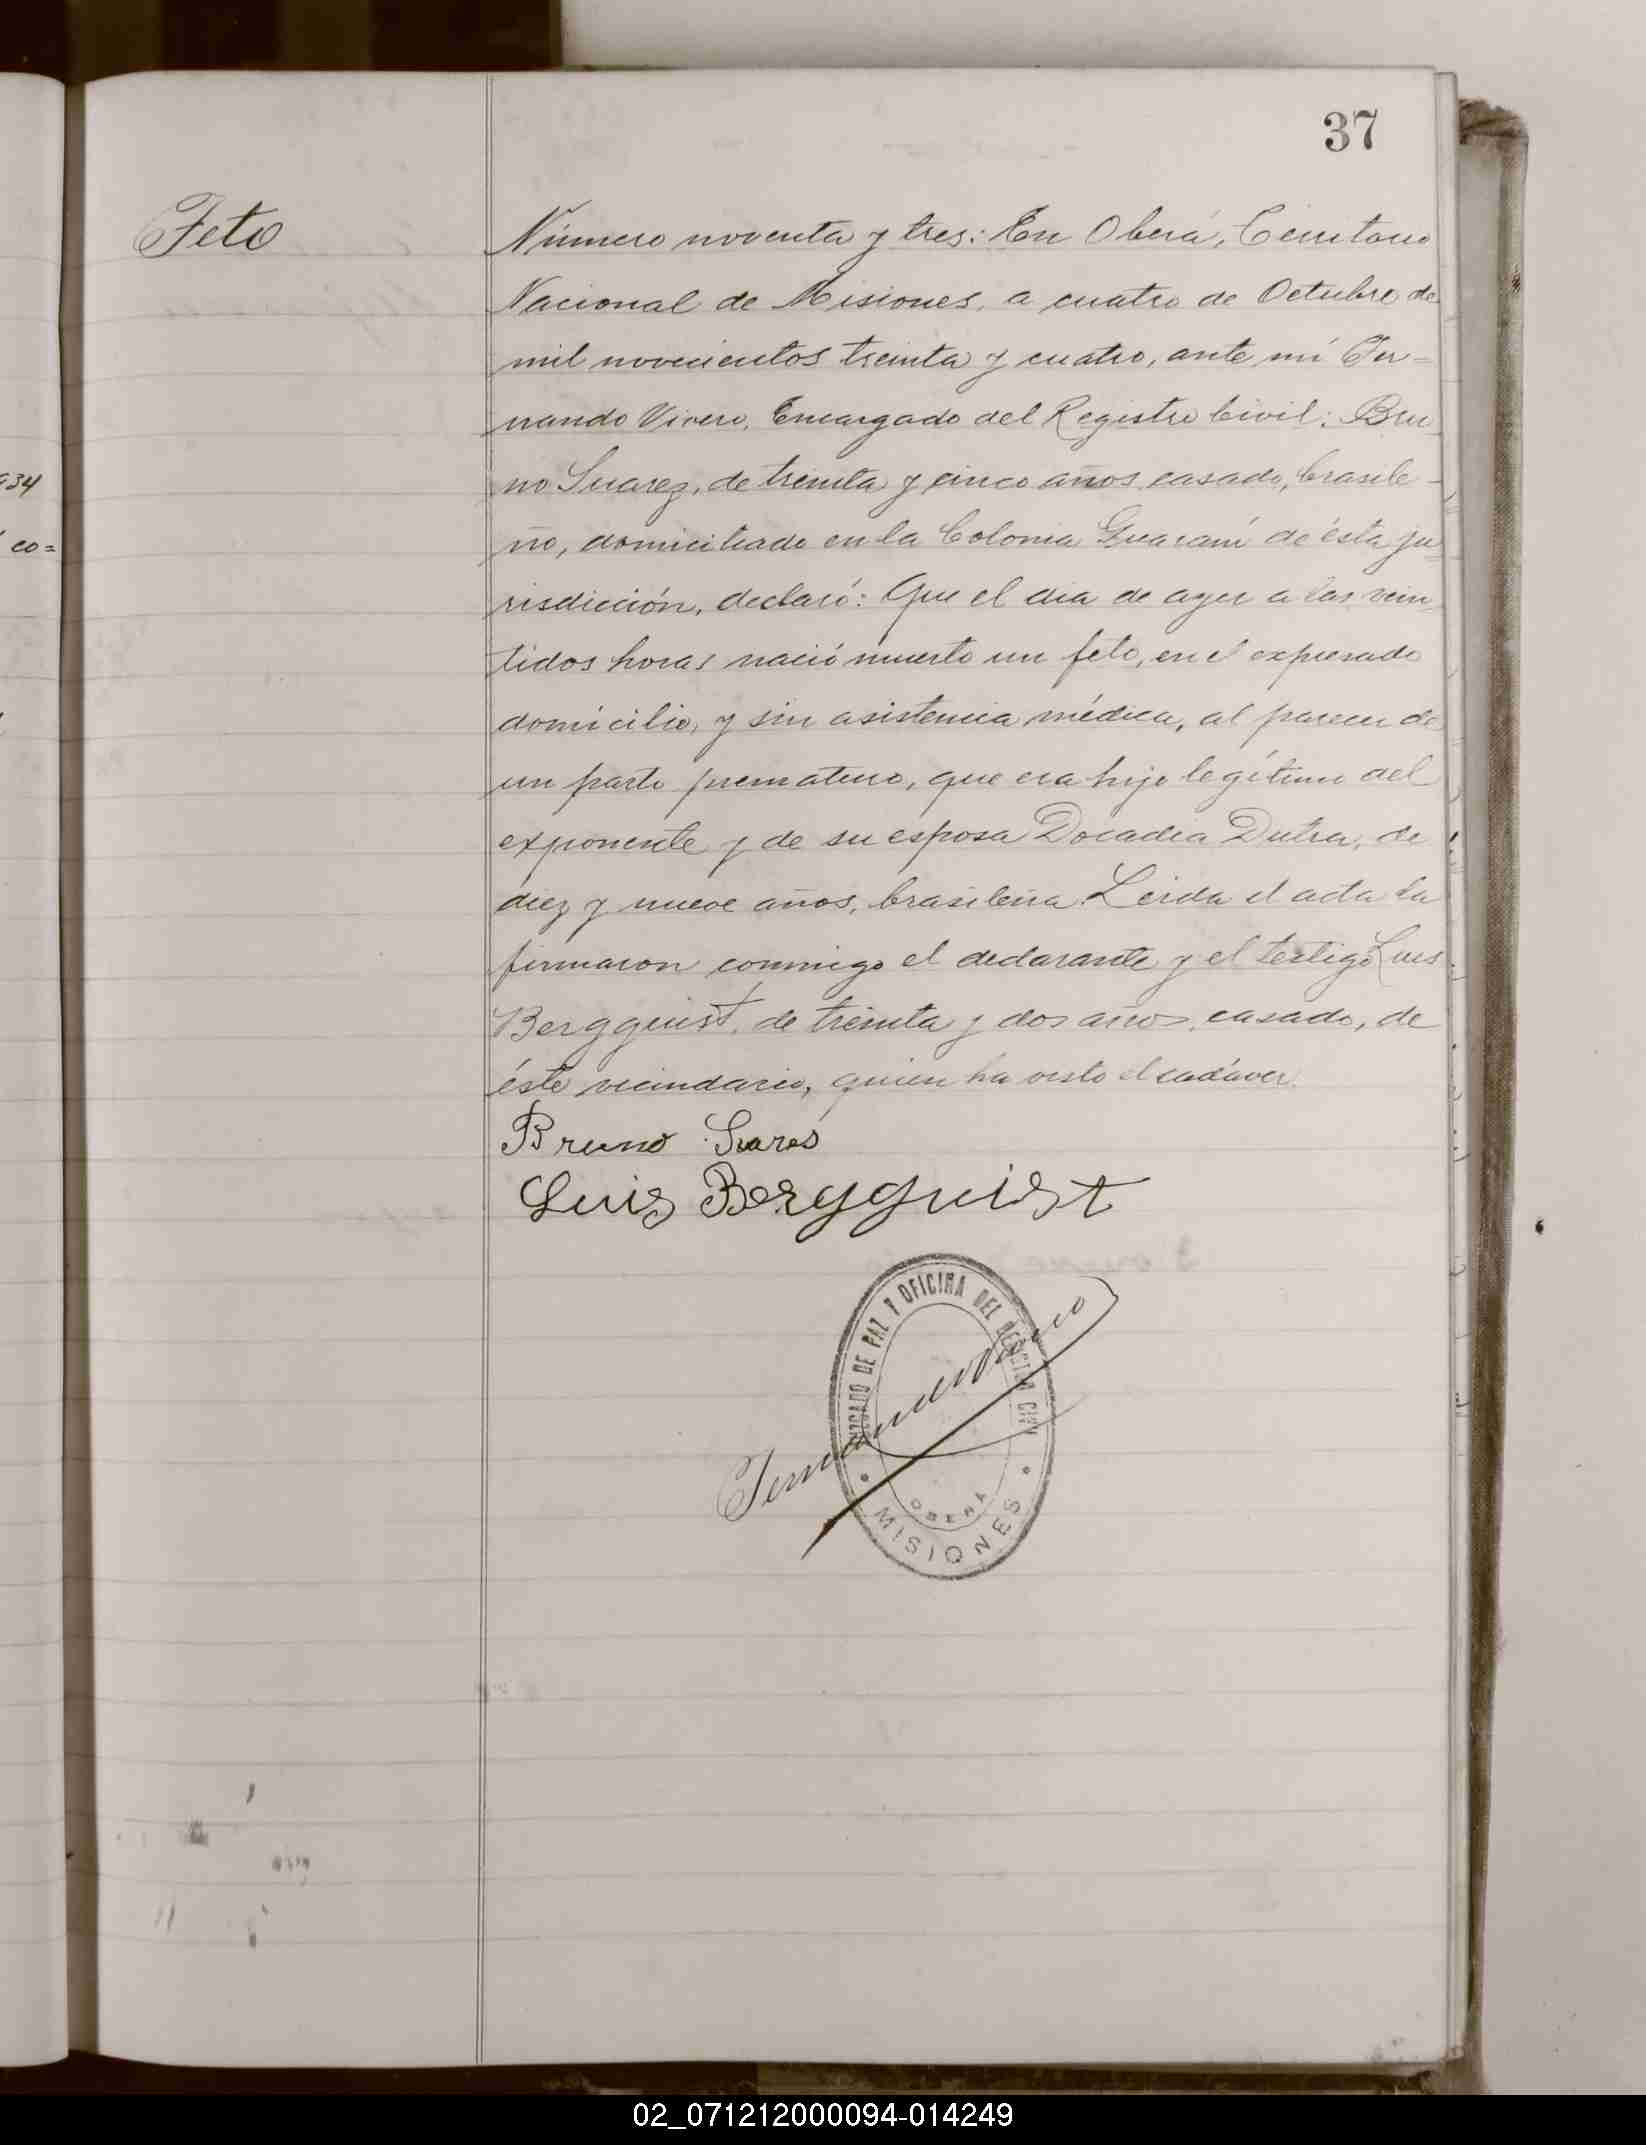 37
Feto
934
co=
Número noventa y tres: En Oberá, Territorio
Nacional de Misiones, a cuatro de Octubre de
mil novecientos treinta y cuatro, ante mí Fer=
nando Vivero, Encargado del Registro Civil: Bru
no Suarez, de treinta y cinco años, casado, brasile-
ño, domiciliado en la Colonia Guaraní de ésta ju
risdicción, declaró: Que el dia de ayer a las vein
tidos horas nació muerto un feto, en el expresado
domicilio, y sin asistencia médica, al parecer de
un parto prematuro, que era hijo legítimo del
exponente y de su esposa Docadia Dutra, de
diez y nueve años, brasileña. Leida el acta la
firmaron conmigo el declarante y el testigo Luis
Bergquist, de treinta y dos años, casado, de
éste vecindario, quien ha visto el cadáver.
Bruno Suares
Luis Bergquist
JUZGADO DE PAZ Y OFICINA DEL REGISTRO CIVIL
Fernando Vivero
OBERÁ
MISIONES
02_071212000094-014249